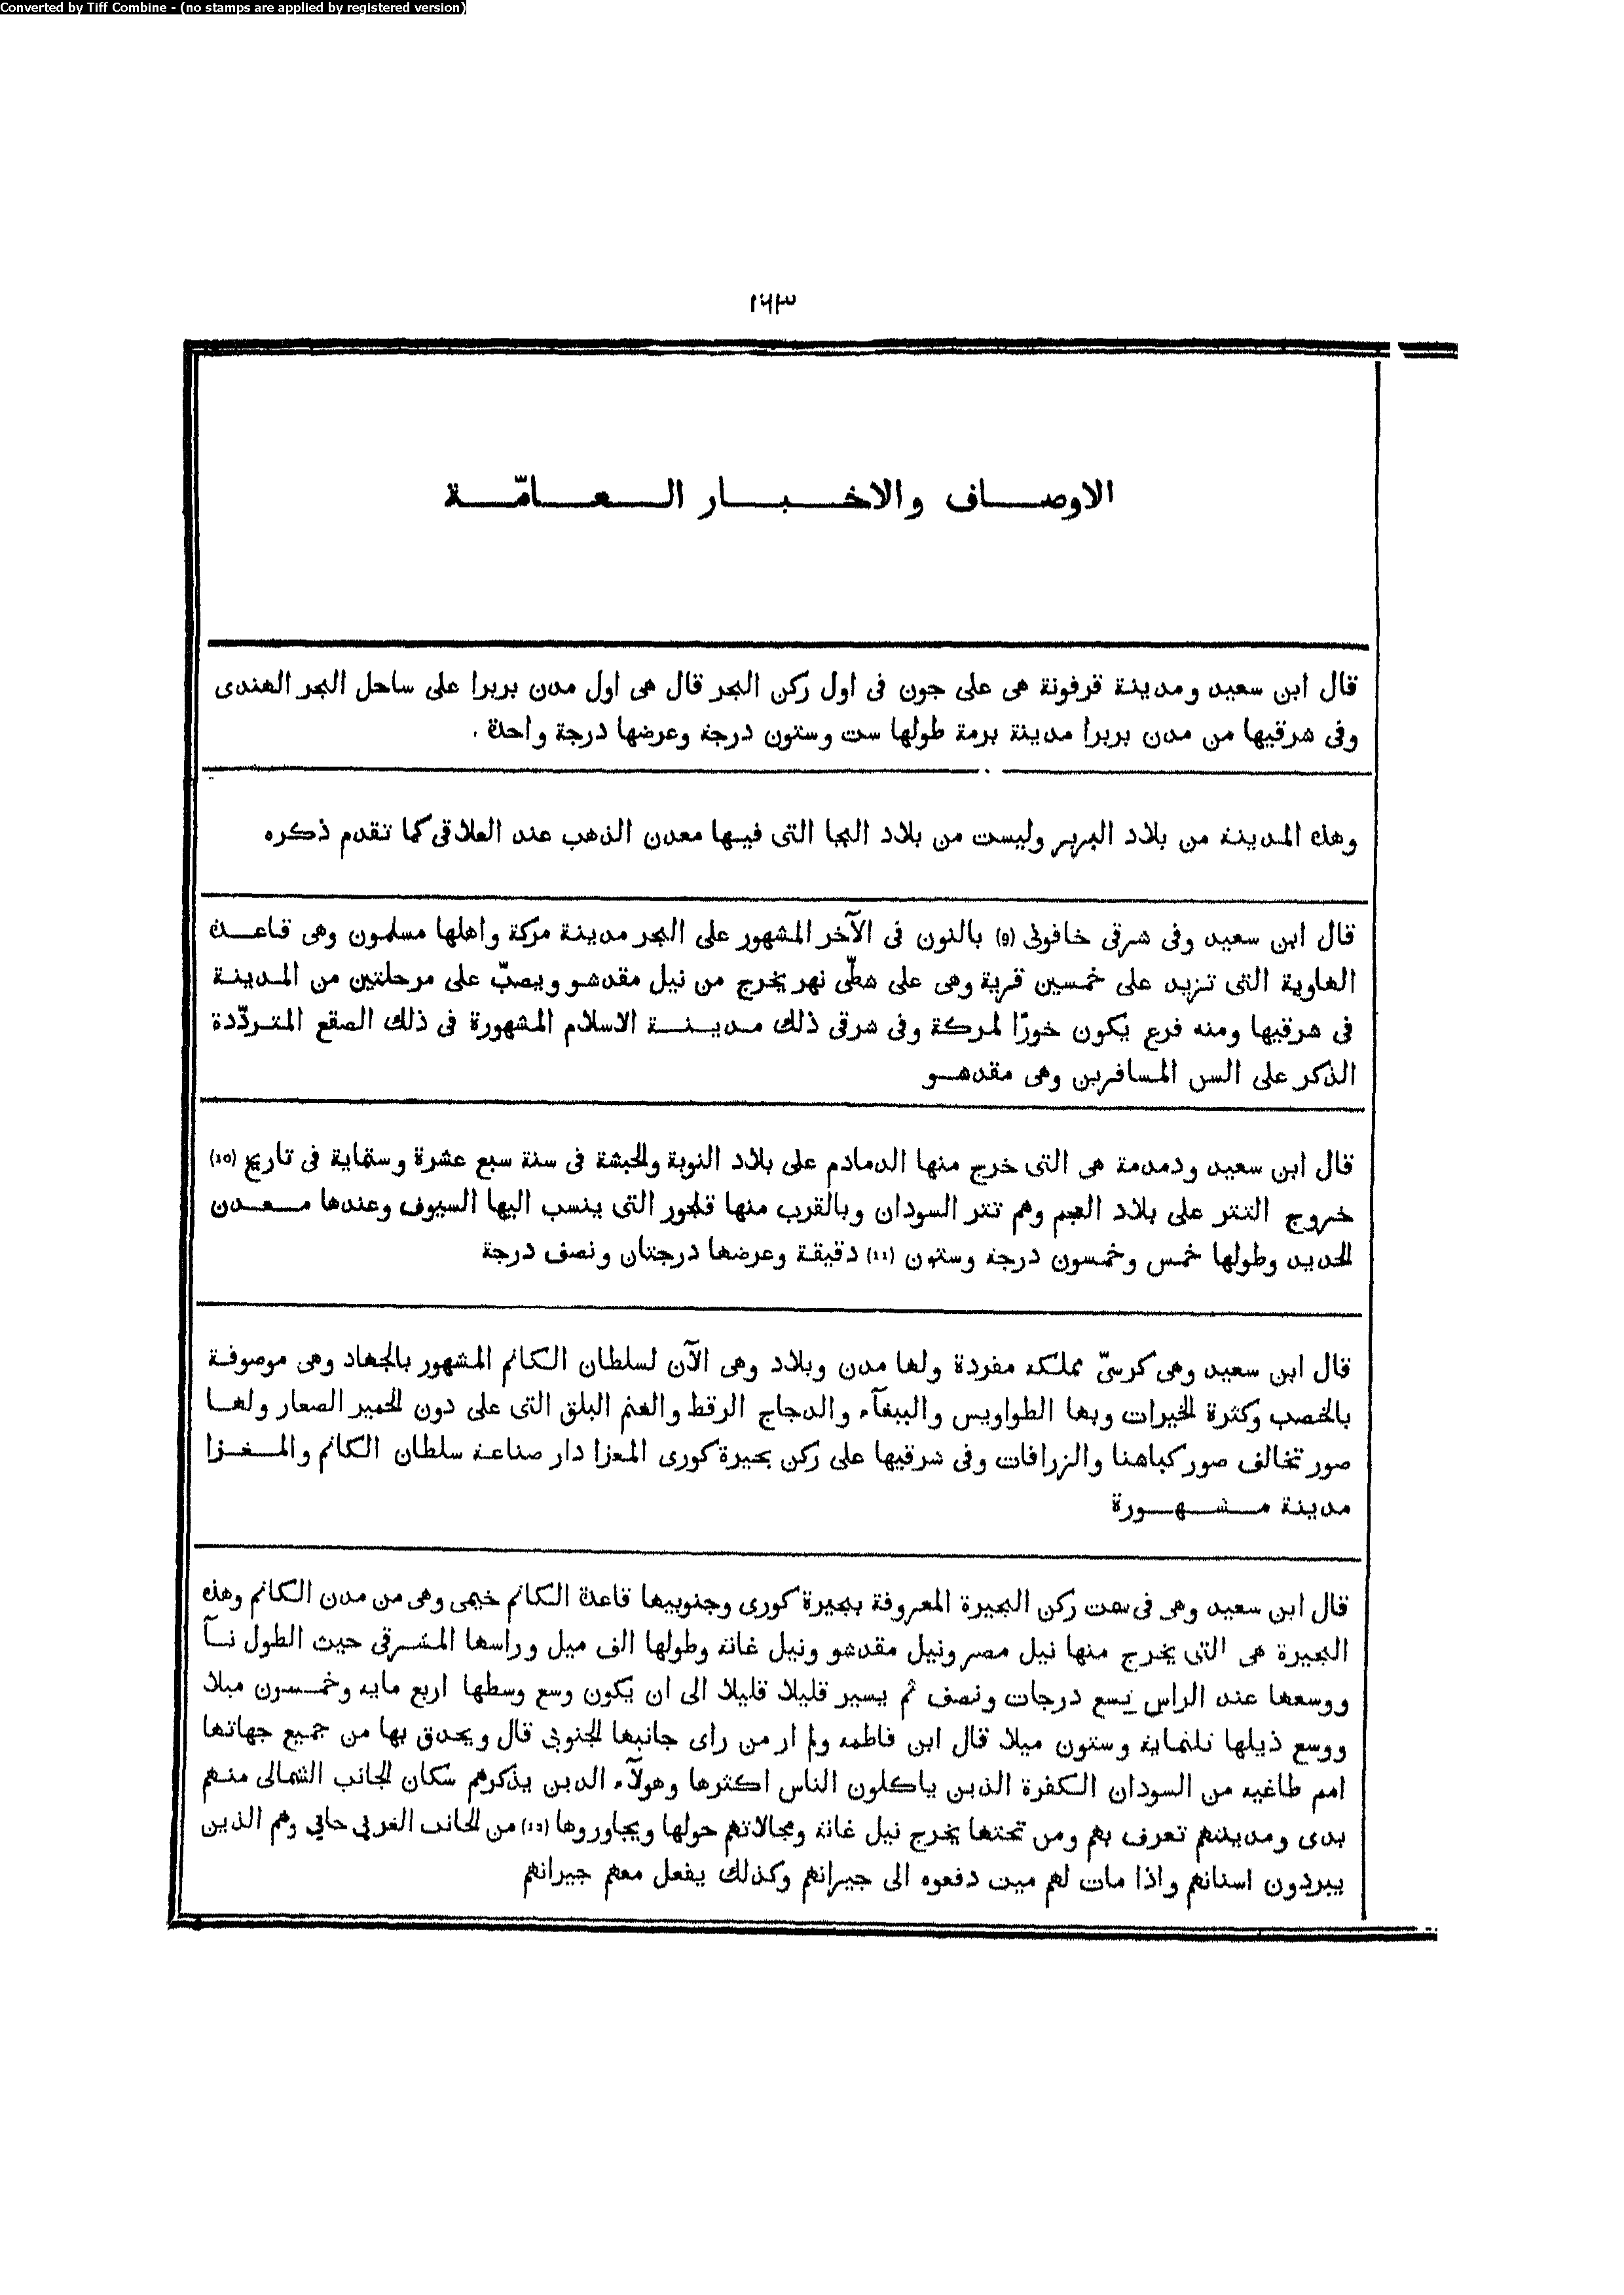 Converted by Tiff Combine - (no stamps are applied by registered version)
١٦٣
الاوصاف والاخبار العامّة
قال ابن سعيد ومدينة قرفونة هى على جون فى اول ركن البحر قال هى اول مدن بربرا على ساحل البحر الهندى
وفى شرقيها من مدن بربرا مدينة برمة طولها ست وستون درجة وعرضها درجة واحدة .
وهذه المدينة من بلاد البربر وليست من بلاد البجا التى فيها معدن الذهب عند العلاقى كما تقدم ذكره
قال ابن سعيد وفى شرقى خافونى (9) بالنون فى الآخر المشهور على البحر مدينة مركة واهلها مسلمون وهى قاعدة
الهاوية التى تزيد على خمسين قرية وهى على شطّى نهر يخرج من نيل مقدشو ويصبّ على مرحلتين من المدينة
فى شرقيها ومنه فرع يكون خورًا لمركة وفى شرقى ذلك مدينة الاسلام المشهورة فى ذلك الصقع المتردّدة
الذكر على السن المسافرين وهى مقدشو
قال ابن سعيد ودمدمة هى التى خرج منها الدمادم على بلاد النوبة والحبشة فى سنة سبع عشرة وستماية فى تاريخ (10)
خروج التتر على بلاد العجم وهم تتر السودان وبالقرب منها قلجور التى ينسب اليها السيوف وعندها معدن
الحديد وطولها خمس وخمسون درجة وستون (11) دقيقة وعرضها درجتان ونصف درجة
قال ابن سعيد وهى كرسىّ مملكه مفردة ولها مدن وبلاد وهى الآن لسلطان الكانم المشهور بالجهاد وهى موصوفة
بالخصب وكثرة الخيرات وبها الطواويس والببغآء والدجاج الرقط والغنم البلق التى على دون الحمير الصعار ولها
صور تخالف صور كباشنا والزرافات وفى شرقيها على ركن بحيرة كورى المغزا دار صناعة سلطان الكانم والمغزا
مدينة مشهورة
قال ابن سعيد وهى فى سمت ركن البحيرة المعروفة ببحيرة كورى وجنوبيها قاعدة الكانم خيمى وهى من مدن الكانم وهذه
البحيرة هى التى يخرج منها نيل مصر ونيل مقدشو ونيل غانة وطولها الف ميل وراسها المشرقى حيث الطول نآ
ووسعها عند الراس تسع درجات ونصف ثم يسير قليلا قليلا الى ان يكون وسع وسطها اربع مايه وخمسون ميلا
ووسع ذيلها ثلثماية وستون ميلا قال ابن فاطمه ولم ار من راى جانبها الجنوبى قال ويحدق بها من جميع جهاتها
امم طاغيه من السودان الكفرة الذين ياكلون الناس اكثرها وهولآء الدين يذكرهم سكان الجانب الشمالى منهم
بدى ومدينتهم تعرف بهم ومن تحتها يخرج نيل غانة ومجالاتهم حولها ويجاوروها (12) من الجانب الغربى جابى وهم الذين
يبردون اسنانهم واذا مات لهم ميت دفعوه الى جيرانهم وكذلك يفعل معهم جيرانهم